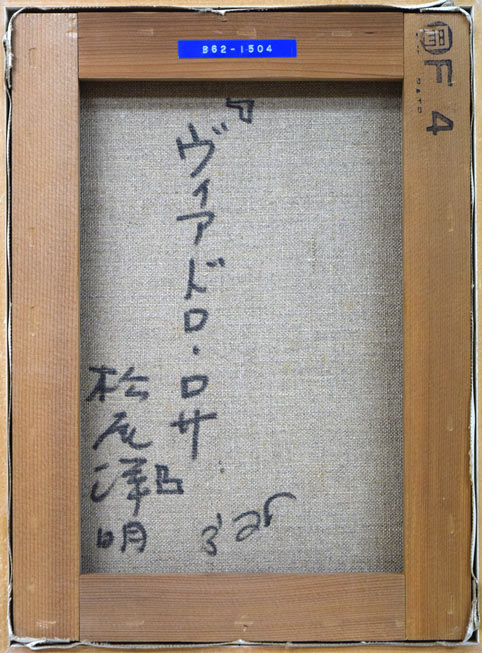 B62-1504
F4
『ヴィアドロ・ロサ』
松尾洋明